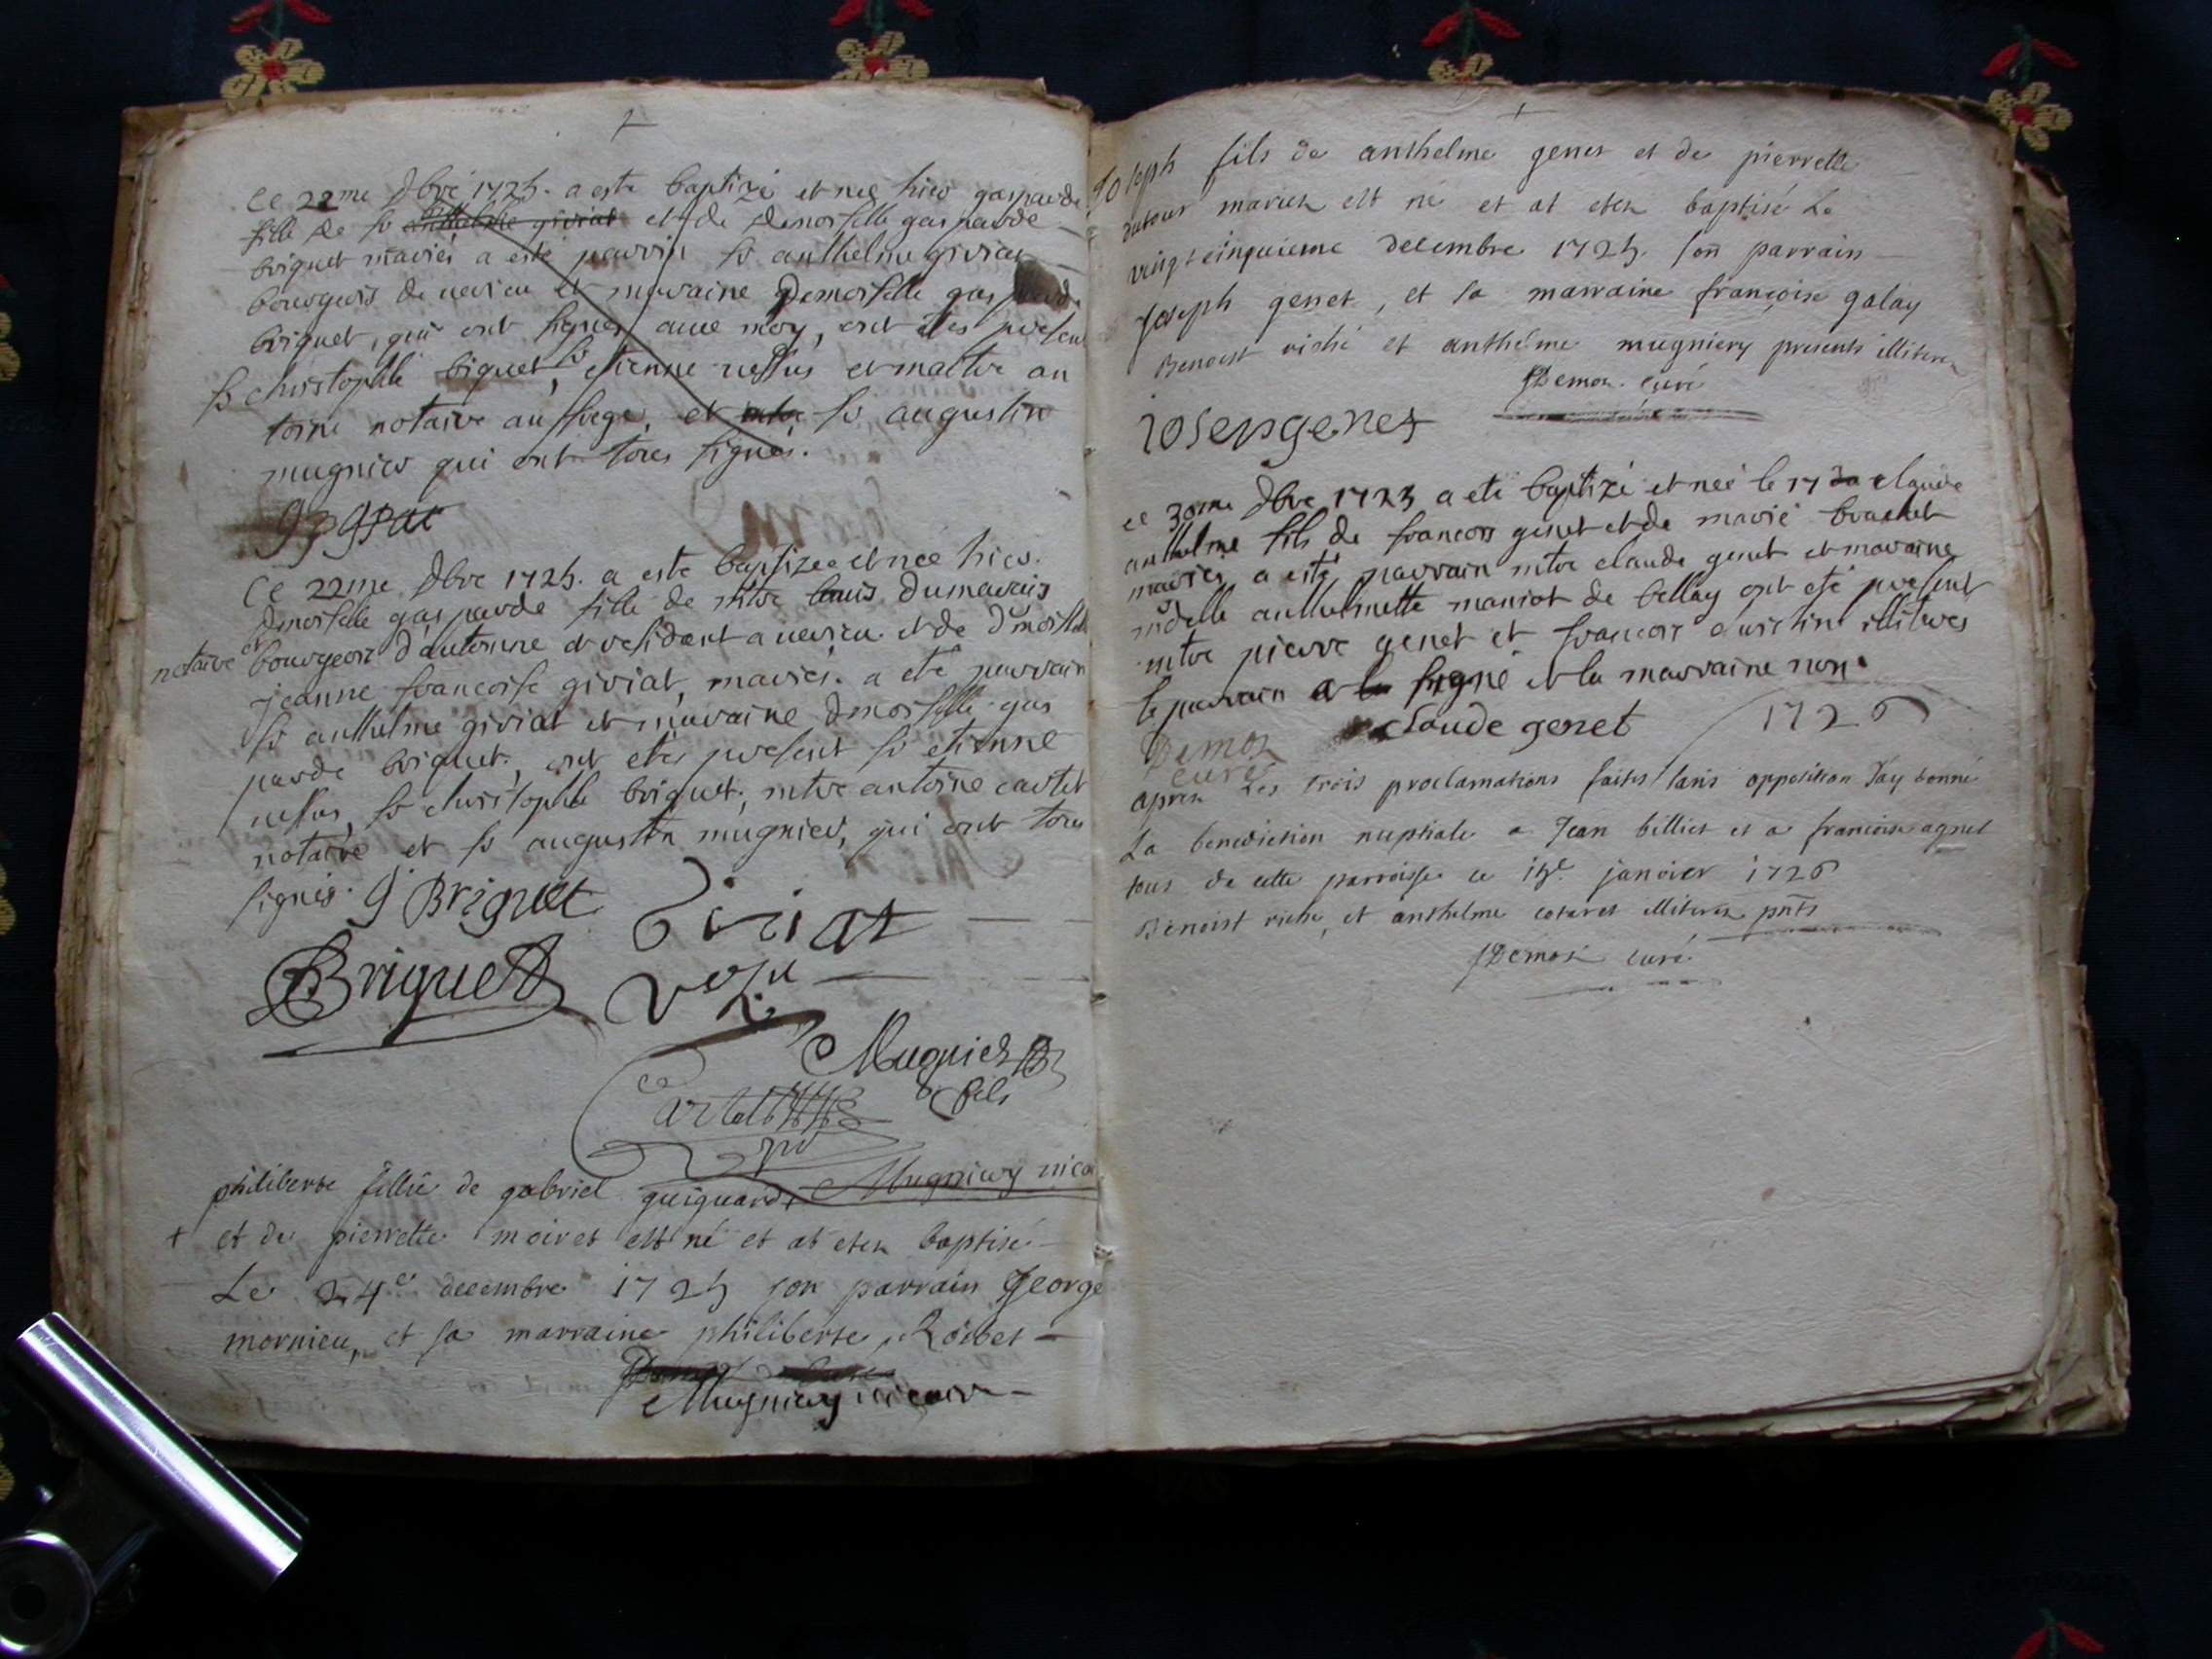 Ce 22me Xbre 1725. a este baptizé et neé hier gasparde
fille de sr anthelme giriat et de demoiselle gasparde
briquet mariés a esté parrin sr anthelme giriat
bourgeois de uerieu et maraine demoiselle gasparde
briquet, qui ont signés auec moy, ont étes present
sr christophle briquet, sr etienne et maitre an
toine notaire au et sr augustin
mugnier qui ont tous signés.
Ce 22me Xbre 1725. a este baptizeé et neé hier.
dmoiselle gasparde fille de mtre louis dumarais
notaire et bourgeois d'autonne et residant a uerieu et de dmoiselle
jeanne francoise giriat, mariés. a eté parrain
sr anthelme giriat et maraine dmoiselle gas
parde briquet, ont etés present sr etienne
sr christophle briquet, mtre antoine cartet
notaire et sr augustin mugnier, qui ont tous
signés. g Briquet
Giriat
Briquet
Mugnier
fils
Cartet
philiberte fillie de gabriel guiguard Mugniery vica
+ et de pierrette moiret est né et at eten baptisé
Le 24e decembre 1725 son parrain George
mornieu, et sa marraine philiberte Roibet
Mugniery vicaire
Joseph fils de anthelme genet et de pierrette
dutour mariez est né et at eten baptisé Le
vingt cinquieme decembre 1725. son parrain
Joseph genet, et sa marraine françoise galay
Benoist riché et anthelme mugniery presents illiteres
Demos. curé
iosepgenet
ce 30me Xbre 1725 a eté baptizé et neé le claude
anthelme fils de francois genet et de marie brachet
mariés a esté parrain mtre claude genet et maraine
mdelle anthelmette maniot de bellay ont eté present
mtre pierre genet et francois illiteres
le parrain a signé et la marraine non.
claude genet 1726
Demos
curé
apres Les trois proclamations faites sans opposition J'ay donné
La benediction nuptiale a Jean billiet et a francoise agnet
tous de cette parroisse ce 15e. janvier 1726
Benoist riché, et anthelme cotaret illiteres pnts
Demos curé